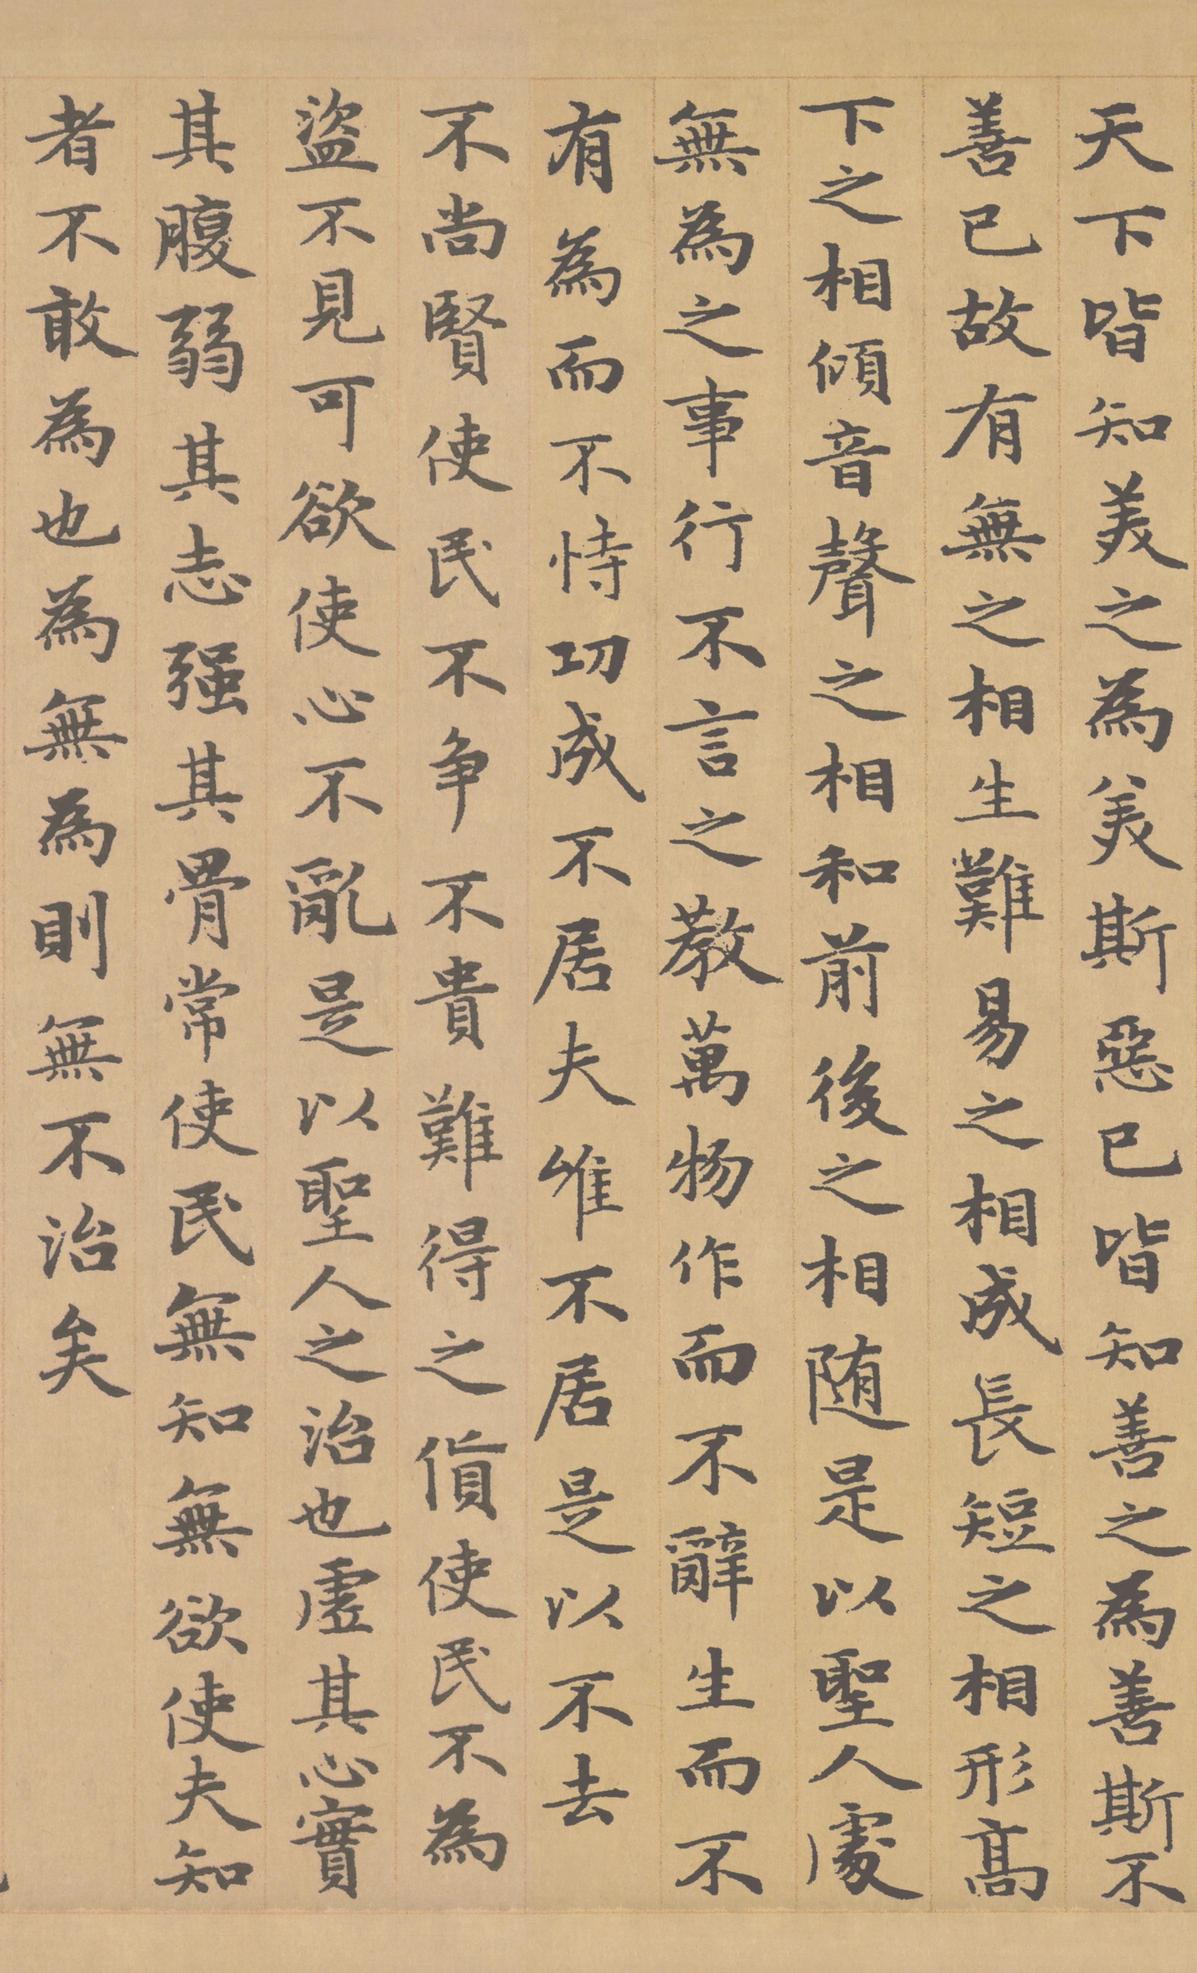 天下皆知美之為美斯惡已皆知善之為善斯不
善已故有無之相生難易之相成長短之相形高
下之相傾音聲之相和前後之相随是以聖人處
無為之事行不言之教萬物作而不辭生而不
有為而不恃功成不居夫惟不居是以不去
不尚賢使民不争不貴難得之貨使民不為
盜不見可欲使心不亂是以聖人之治也虛其心實
其腹弱其志强其骨常使民無知無欲使夫知
者不敢為也為無為則無不治矣